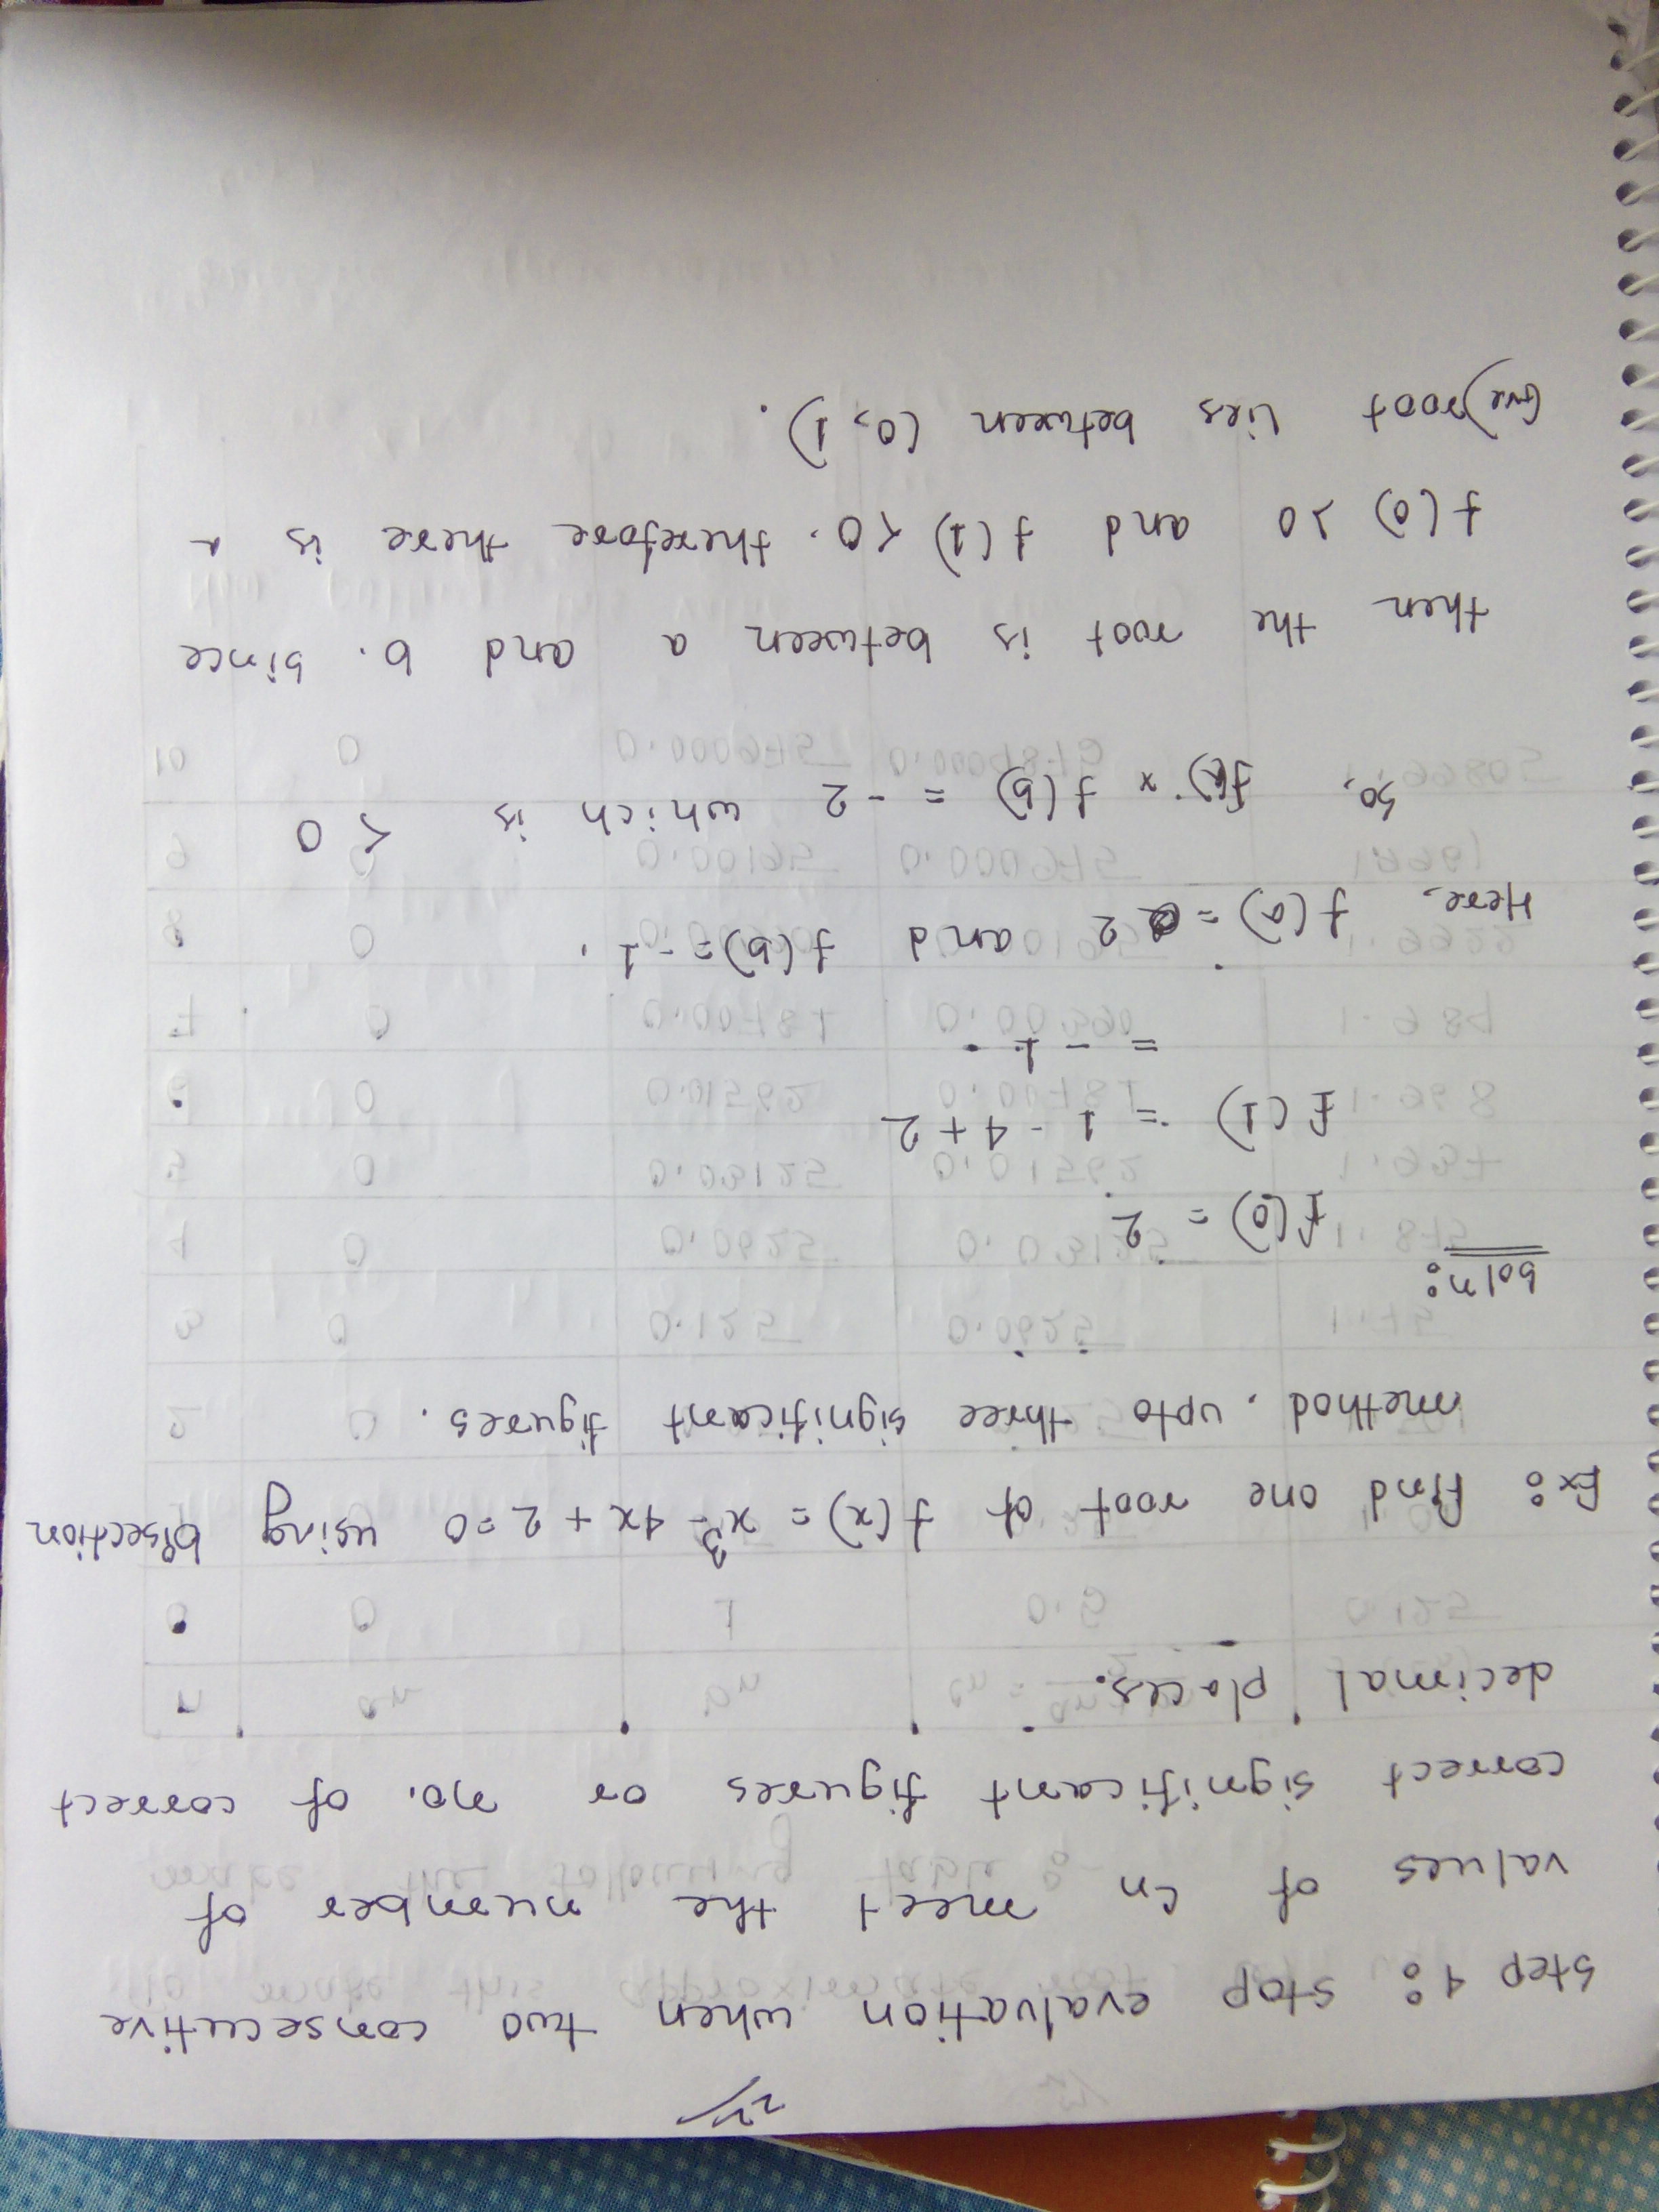 22
Step 4: Stop evaluation when two consecutive
values of cn meet the number of
correct significant figures or no. of correct
decimal places.
Ex: Find one root of f(x) = x³- 4x + 2 = 0 using bisection
method, upto three significant figures.
Solⁿ:
f(0) = 2.
f(1) = 1 - 4 + 2
= - 1.
Here, f(a) = 2 and f(b) = -1.
So, f(a) x f(b) = - 2 which is < 0
then the root is between a and b. Since
f(0) >0 and f(1) <0. therefore there is a
(+ve) root lies between (0, 1).